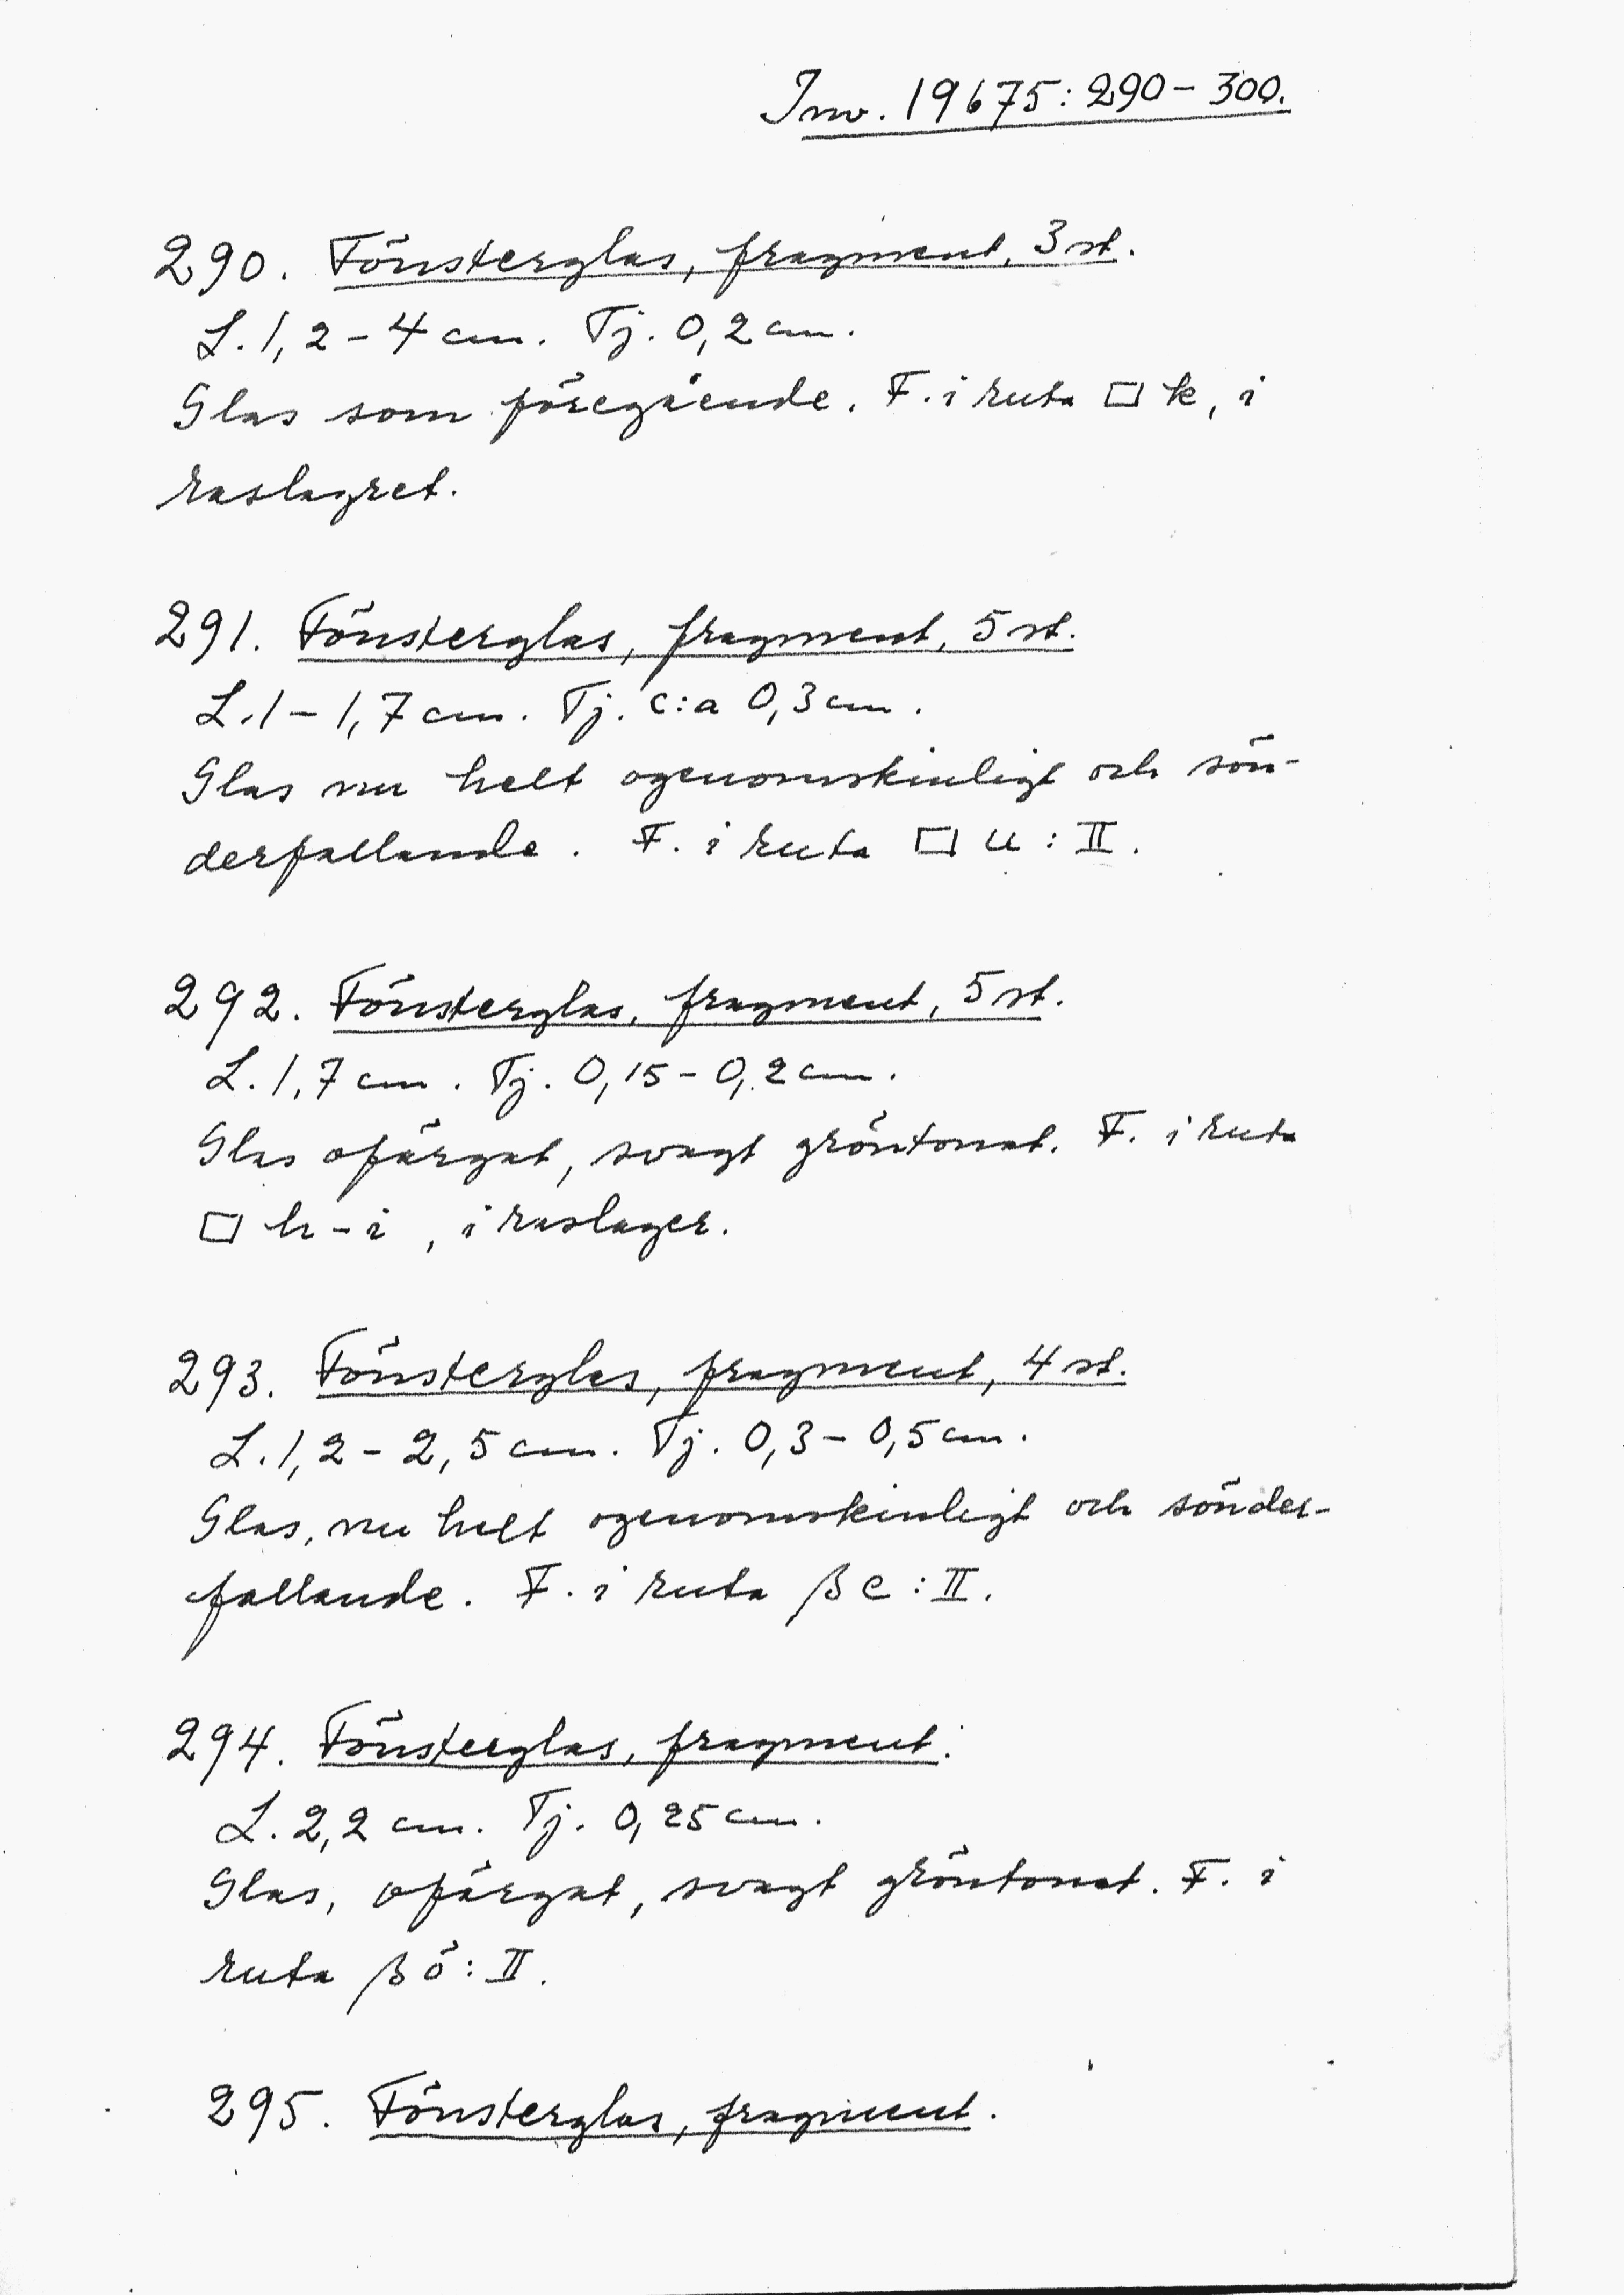 Inv. 19675: 290-300.
290. Fönsterglas, fragment, 3 st.
L. 1,2-4 cm. Tj. 0,2 cm.
Glas som föregående. F. i ruta □ k, i
raslagret.
291. Fönsterglas, fragment, 5 st.
L. 1-1,7 cm. Tj. c:a 0,3 cm.
Glas nu helt ogenomskinligt och sön-
derfallande. F. i ruta □ u : II.
292. Fönsterglas, fragment, 5 st.
L. 1,7 cm. Tj. 0,15-0,2 cm.
Glas ofärgat, svagt gröntonat. F. i ruta
□ h-i, i raslager.
293. Fönsterglas, fragment, 4 st.
L. 1,2-2,5 cm. Tj. 0,3-0,5 cm.
Glas, nu helt ogenomskinligt och sönder-
fallande. F. i ruta β e : II.
294. Fönsterglas, fragment.
L. 2,2 cm. Tj. 0,25 cm.
Glas, ofärgat, svagt gröntonat. F. i
ruta β ö : II.
295. Fönsterglas, fragment.